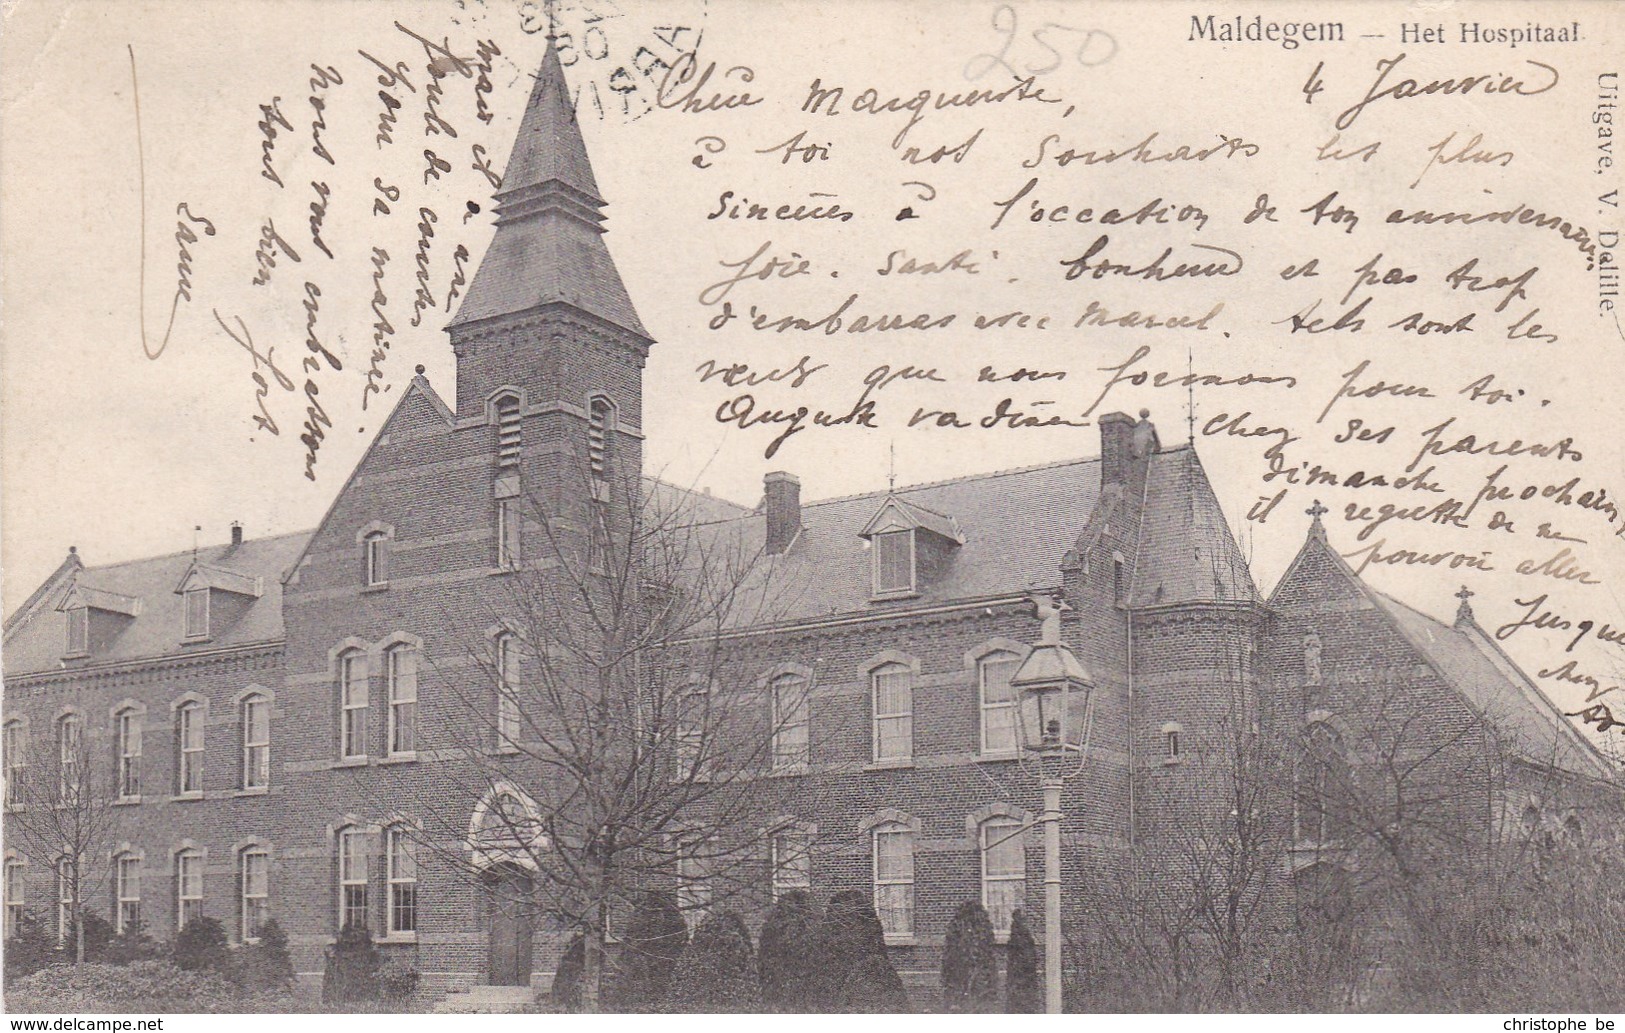 Maldegem — Het Hospitaal.
Uitgave, V. Dalille.
250
4 Janvier
Chère Marguerite,
à toi nos souhaits les plus
sincères à l'occation de ton anniversaire
Joie. Santé. bonheur et pas trop
d'embarras avec Marcel. tels sont les
vœux que nous formons pour toi.
Auguste va diner chez ses parents
dimanche prochain,
il regrette de ne
pouvoir aller
jusque
chez
toi
mais il a une
foule de courses
pour sa matinée.
Nous vous embrassons
tous bien fort.
christophe be
www.delcampe.net